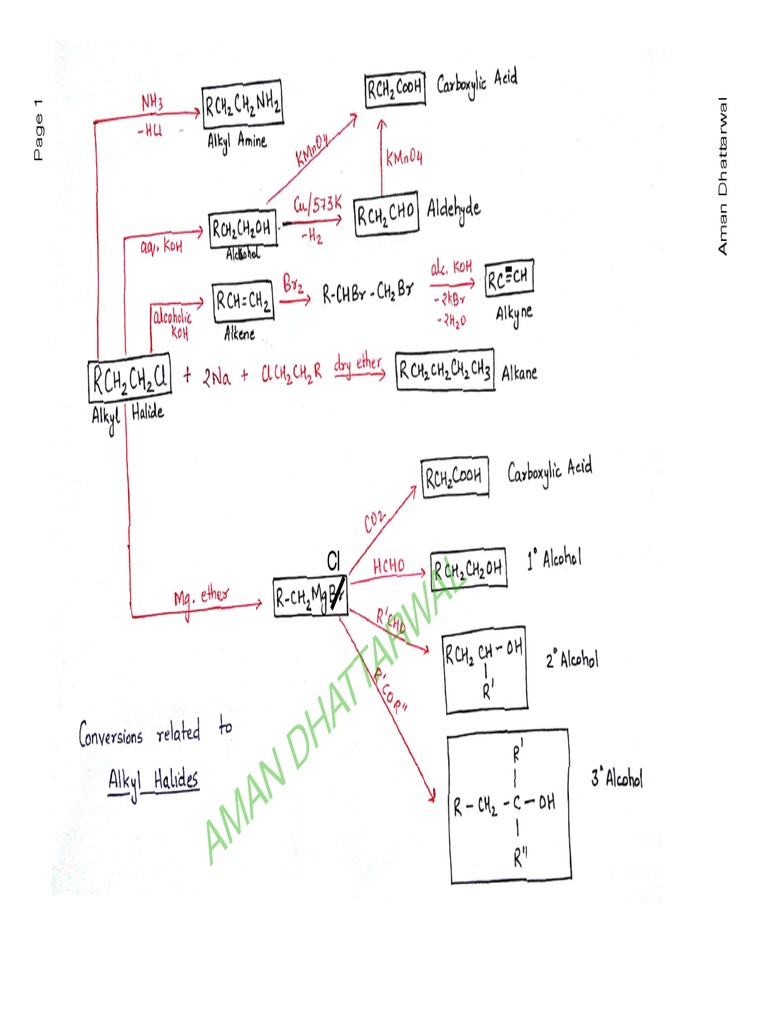 Page 1
Aman Dhattarwal
NH3
-HCl
RCH2CH2NH2
Alkyl Amine
RCH2COOH Carboxylic Acid
KMnO4
KMnO4
aq. KOH
RCH2CH2OH
Alcohol
Cu/573K
-H2
RCH2CHO Aldehyde
alcoholic
KOH
RCH=CH2
Alkene
Br2
R-CHBr-CH2Br
alc. KOH
-2KBr
-2H2O
RC≡CH
Alkyne
RCH2CH2Cl + 2Na + ClCH2CH2R dry ether RCH2CH2CH2CH3 Alkane
Alkyl Halide
Mg. ether
Cl
R-CH2MgBr
CO2
RCH2COOH Carboxylic Acid
HCHO
RCH2CH2OH 1° Alcohol
R'CHO
RCH2 CH-OH
R'
2° Alcohol
R'COR"
R'
R-CH2-C-OH
R"
3° Alcohol
Conversions related to
Alkyl Halides
AMAN DHATTARWAL